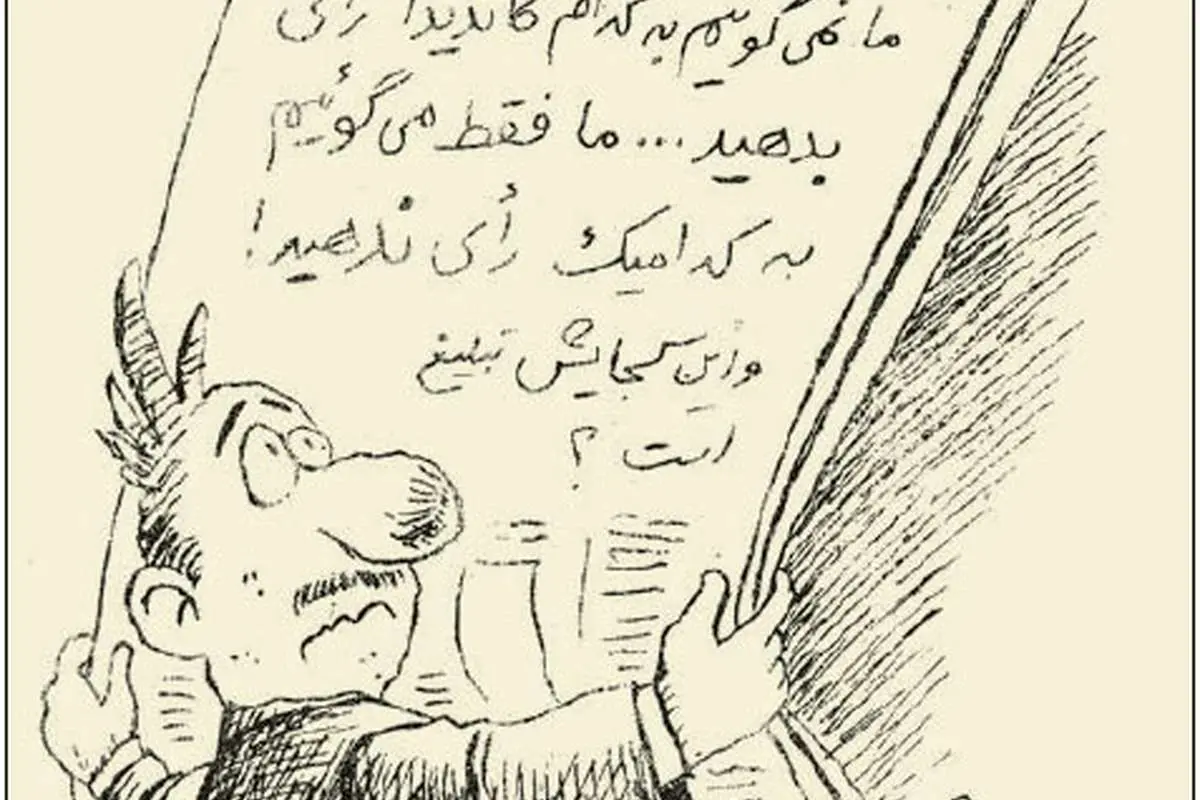 ما نمی‌گوئیم به کدام کاندیدا رأی
بدهید... ما فقط می‌گوئیم
به کدامیک رأی ندهید!
و این کجایش تبلیغ
است ؟